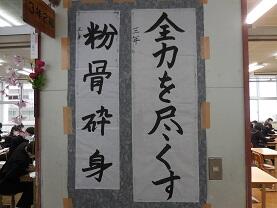 全力を尽くす
三年
粉骨砕身